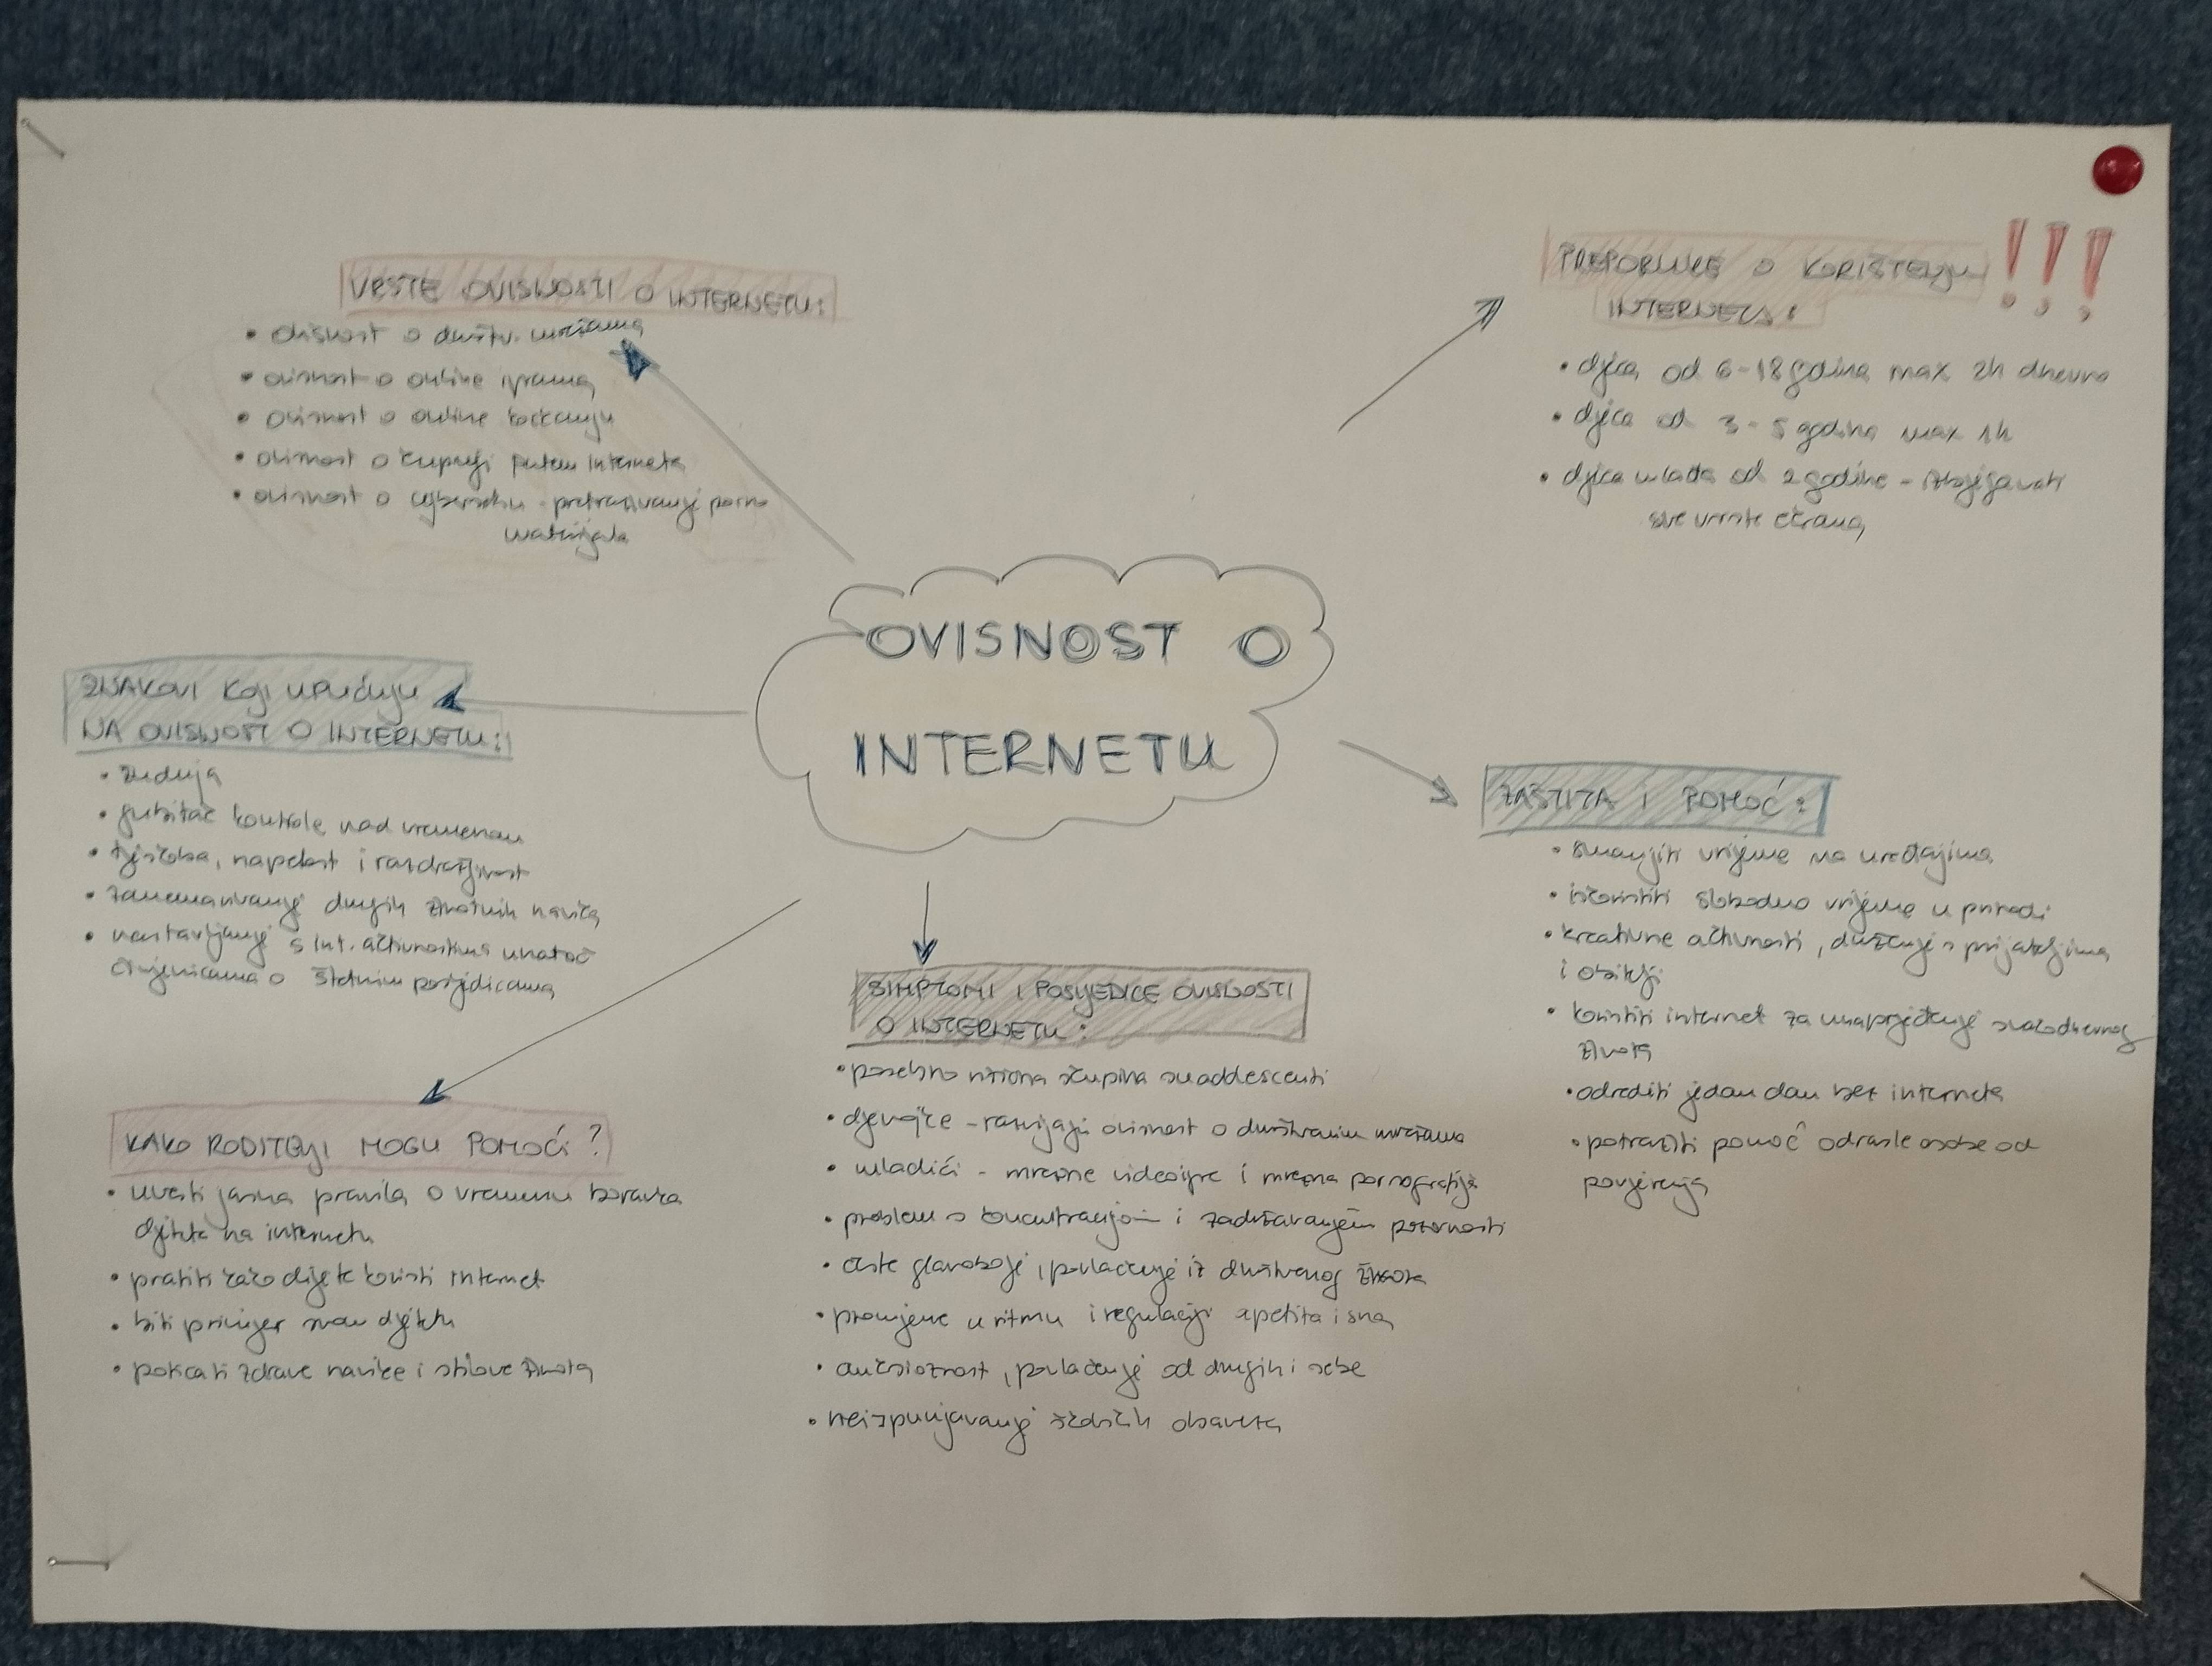 OVISNOST O
INTERNETU
VRSTE OVISNOSTI O INTERNETU:
• ovisnost o društv. mrežama
• ovisnost o online igrama
• ovisnost o online kockanju
• ovisnost o kupnji putem interneta
• ovisnost o cybersexu - pretraživanje porno
materijala
PREPORUKE O KORIŠTENJU !!!
INTERNETA:
• djeca od 6-18 godina max 2h dnevno
• djeca od 3-5 godina max 1h
• djeca mlađa od 2 godine - izbjegavati
sve vrste ekrana
ZNAKOVI KOJI UPUĆUJU
NA OVISNOST O INTERNETU:
• žudnja
• gubitak kontrole nad vremenom
• tjeskoba, napetost i razdražljivost
• zanemarivanje drugih životnih navika
• nastavljanje s int. aktivnostima unatoč
činjenicama o štetnim posljedicama
ZAŠTITA I POMOĆ:
• smanjiti vrijeme na uređajima
• iskoristiti slobodno vrijeme u prirodi
• kreativne aktivnosti, druženje s prijateljima
i obitelji
• koristiti internet za unaprjeđenje svakodnevnog
života
• odrediti jedan dan bez interneta
• potražiti pomoć odrasle osobe od
povjerenja
SIMPTOMI I POSLJEDICE OVISNOSTI
O INTERNETU:
• posebno rizična skupina su adolescenti
• djevojke - razvijaju ovisnost o društvenim mrežama
• mladići - mrežne videoigre i mrežna pornografija
• problem s koncentracijom i zadržavanjem pozornosti
• česte glavobolje, povlačenje iz društvenog života
• promjene u ritmu i regulaciji apetita i sna
• anksioznost, povlačenje od drugih i sebe
• neispunjavanje školskih obaveza
KAKO RODITELJI MOGU POMOĆI?
• uvesti jasna pravila o vremenu boravka
djeteta na internetu
• pratiti kako dijete koristi internet
• biti primjer svom djetetu
• poticati zdrave navike i stilove života